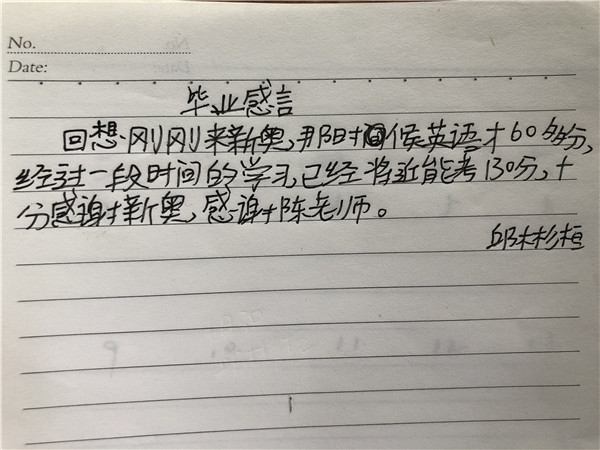 No.
Date:
毕业感言
回想刚刚来新奥,那时候英语才60多分,
经过一段时间的学习,已经将近能考130分,十
分感谢新奥,感谢陈老师。
邱彬桓